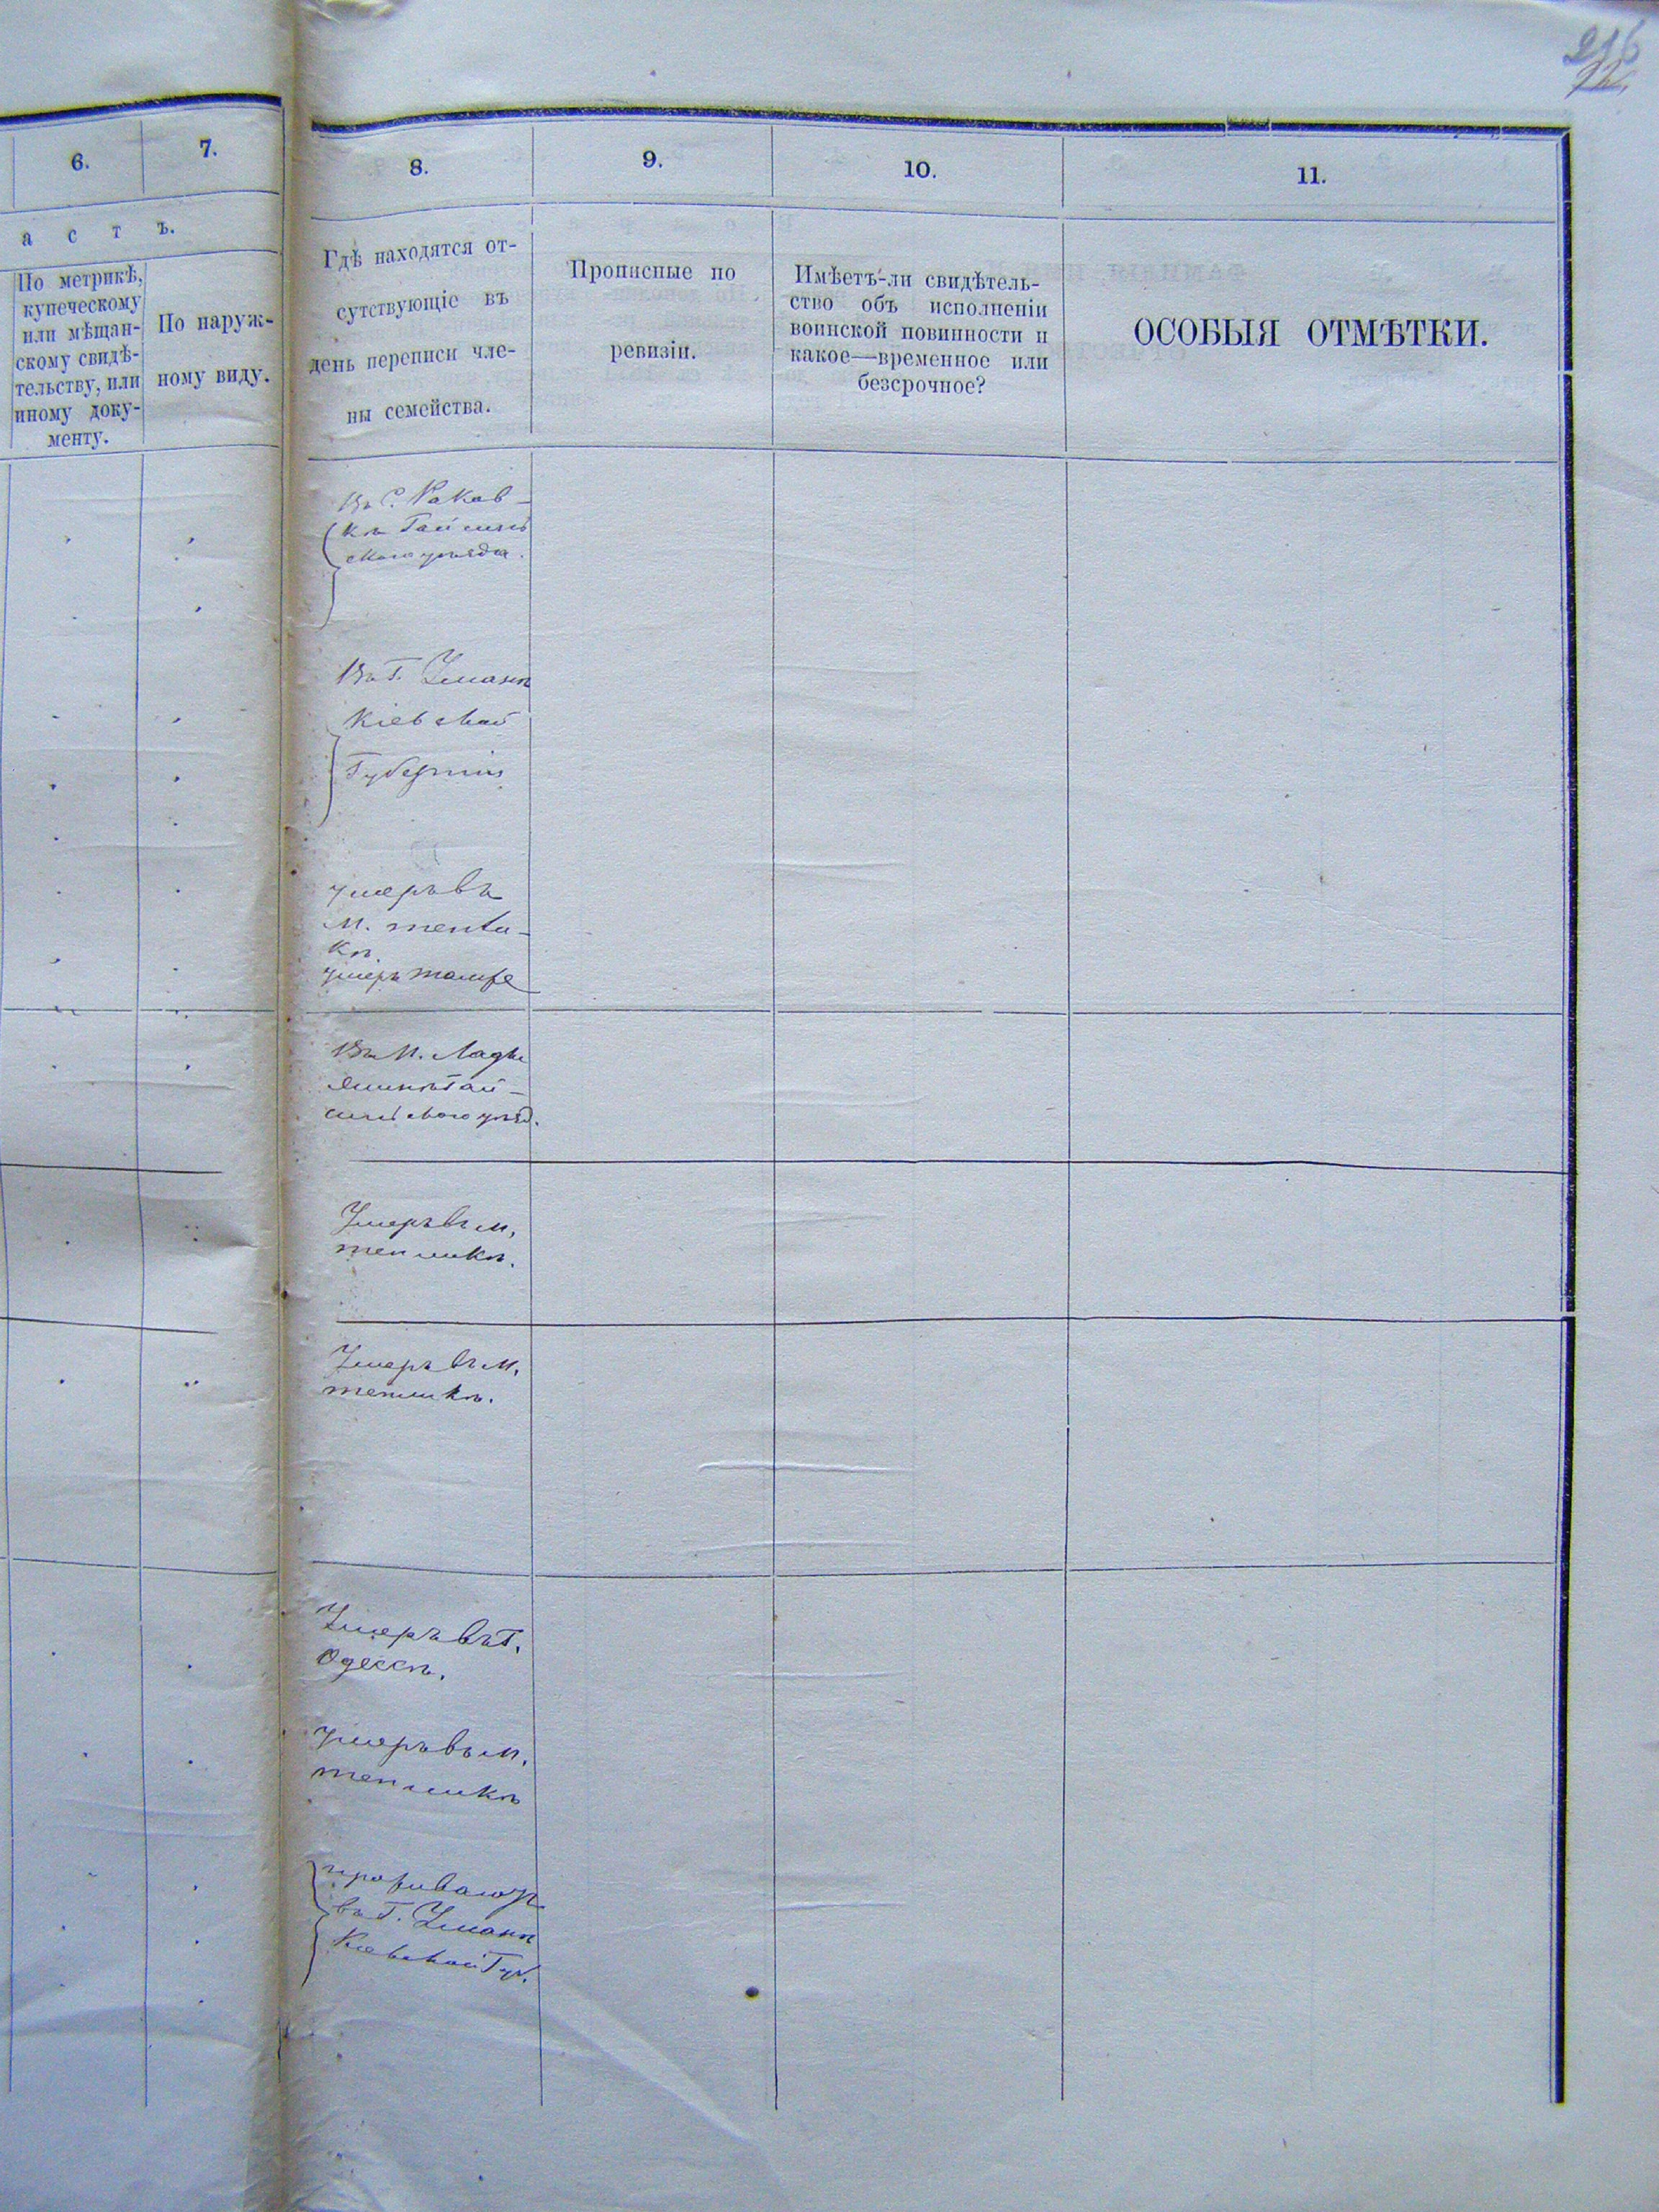 216
6.
7.
8.
9.
10.
11.
а с т ъ.
По метрикѣ,
купеческому
или мѣщан-
скому свидѣ-
тельству, или
иному доку-
менту.
По наруж-
ному виду.
Гдѣ находятся от-
сутствующіе въ
день переписи чле-
ны семейства.
Прописные по
ревизіи.
Имѣетъ-ли свидѣтель-
ство объ исполненіи
воинской повинности и
какое—временное или
безсрочное?
ОСОБЫЯ ОТМѢТКИ.
Въ С. Раков-
кѣ Гайсинь
скаго уѣзда.
Въ Г. Умани
Кіевской
Губерніи
умеръ въ
М. тепли-
кѣ.
умеръ тамже
Въ М. Лады
жинѣ Гай-
синьскаго уѣзд.
Умеръ въ м.
тепликѣ.
Умеръ въ м.
тепликѣ.
Умеръ въ Г.
Одессѣ.
умеръ въ м.
тепликѣ
проживаютъ
въ Г. Умани
Кіевской Губ.